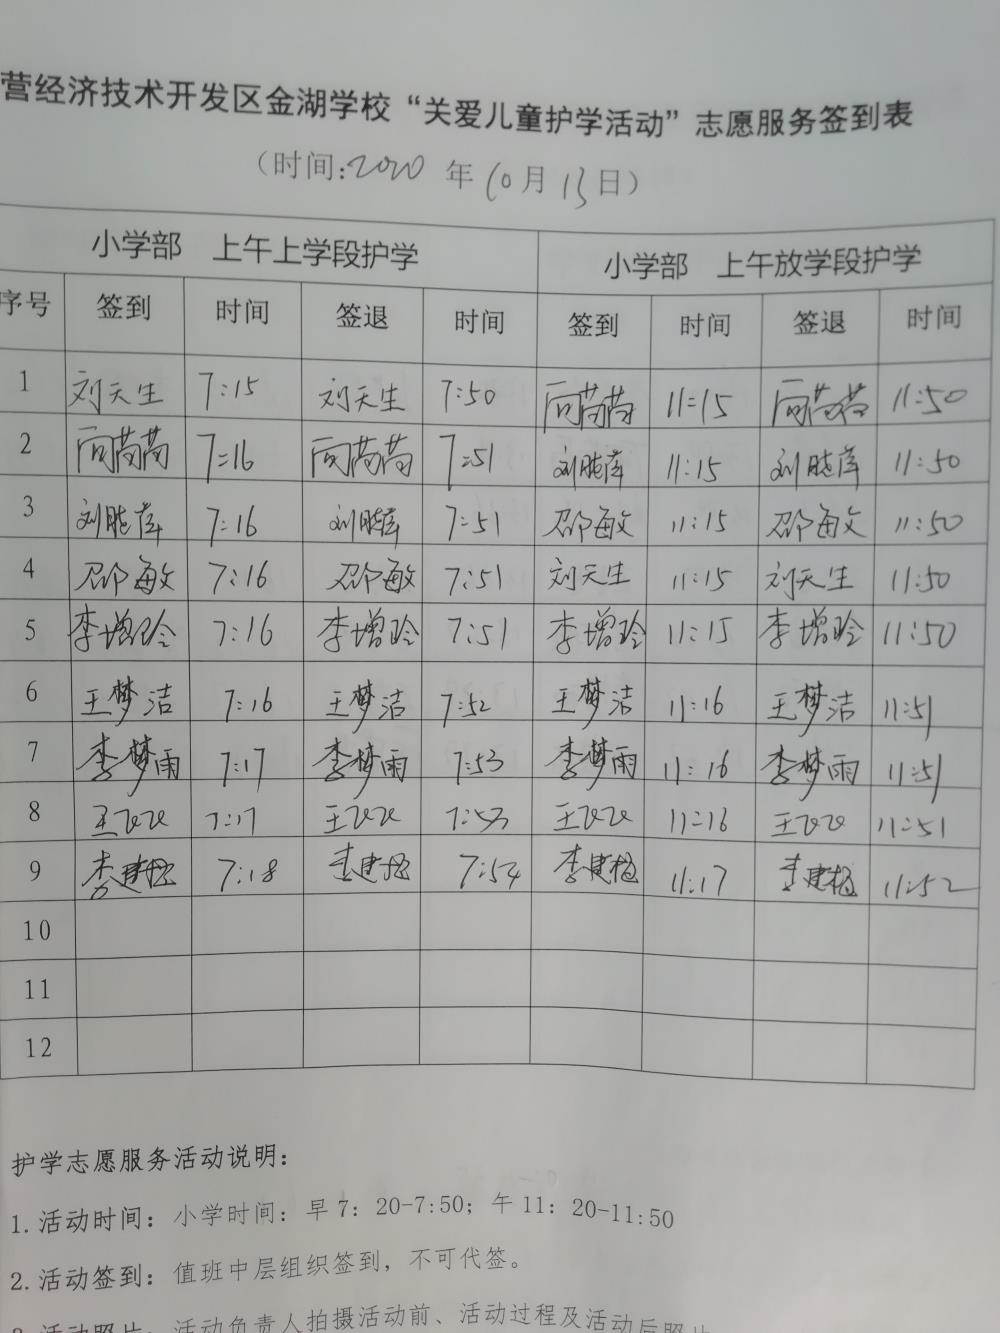 营经济技术开发区金湖学校“关爱儿童护学活动”志愿服务签到表
（时间:2020 年 10月 13日）
小学部 上午上学段护学 小学部 上午放学段护学
序号 签到 时间 签退 时间 签到 时间 签退 时间
1 刘天生 7:15 刘天生 7:50 11:15 11:50
2 7:16 7:51 刘晓萍 11:15 刘晓萍 11:50
3 刘晓萍 7:16 刘晓萍 7:51 邵敏 11:15 邵敏 11:50
4 邵敏 7:16 邵敏 7:51 刘天生 11:15 刘天生 11:50
5 李增玲 7:16 李增玲 7:51 李增玲 11:15 李增玲 11:50
6 王梦洁 7:16 王梦洁 7:52 王梦洁 11:16 王梦洁 11:51
7 李梦雨 7:17 李梦雨 7:53 李梦雨 11:16 李梦雨 11:51
8 7:17 7:53 11:16 11:51
9 7:18 7:54 11:17 11:52
10
11
12
护学志愿服务活动说明：
1.活动时间：小学时间：早7：20-7:50；午11：20-11:50
2.活动签到：值班中层组织签到，不可代签。
3.活动照片：活动负责人拍摄活动前、活动过程及活动后照片